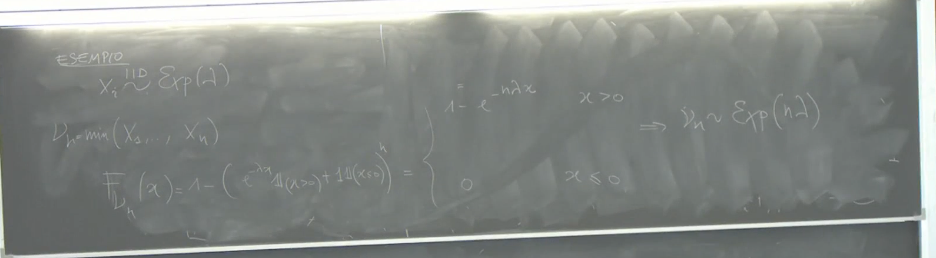 ESEMPIO
Xᵢ IID ~ Exp(λ)
Vₙ = min(X₁, ..., Xₙ)
F_{Vₙ}(x) = 1 - (e^{-λx} 𝟙(x>0) + 1 𝟙(x≤0))ⁿ = { 1 - e^{-nλx} x > 0
0 x ≤ 0
⇒ Vₙ ~ Exp(nλ)